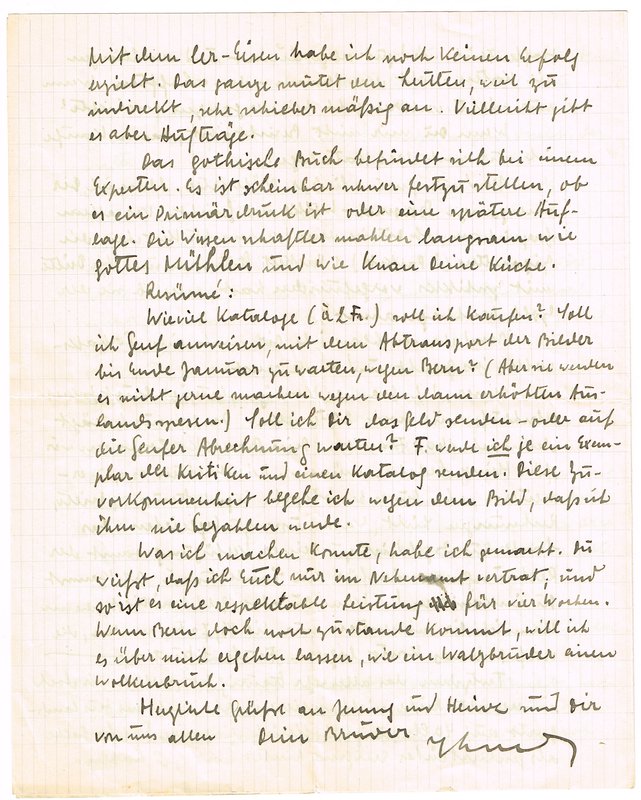 Mit dem Cer-Eisen habe ich noch keinen Erfolg
erzielt. Das ganze mutet den Leuten, weil zu
indirekt, sehr schiebermäßig an. Vielleicht gibt
es aber Aufträge.
Das gothische Buch befindet sich bei einem
Experten. Es ist scheinbar schwer festzustellen, ob
es ein Primärdruck ist oder eine spätere Auf-
lage. Die Wissenschaftler mahlen langsam wie
Gottes Mühlen und wie Knau Deine Küche.
Resümé:
Wieviel Kataloge (à 2 Fr.) soll ich kaufen? Soll
ich Genf anweisen, mit dem Abtransport der Bilder
bis Ende Januar zu warten, wegen Bern? (Aber sie werden
es nicht gerne machen wegen den dann erhöhten Aus-
landsspesen.) Soll ich Dir das Geld senden – oder auf
die Genfer Abrechnung warten? F. werde ich je ein Exem-
plar der Kritiken und einen Katalog senden. Diese Zu-
vorkommenheit begehe ich wegen dem Bild, daß ich
ihm nie bezahlen werde.
Was ich machen konnte, habe ich gemacht. Du
weißt, daß ich Euch nur im Nebenamt vertrat, und
so ist es eine respektable Leistung für vier Wochen.
Wenn Bern doch noch zustande kommt, will ich
es über mich ergehen lassen, wie ein Walzbruder einen
Wolkenbruch.
Herzliche Grüße an Jenny und Heiwe und Dir
von uns allen Dein Bruder